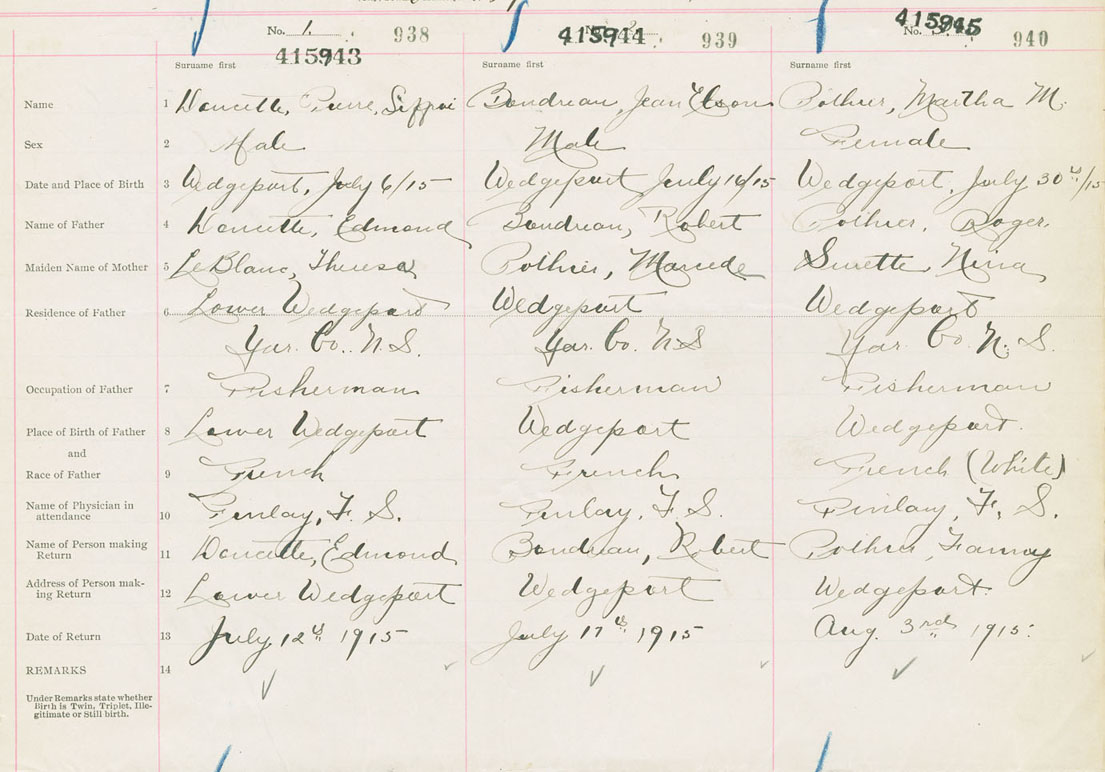 No. 1. 938 No. 939 No. 940
415943 415944 415945
Surname first Surname first Surname first
Name 1 Doucette, Pierre, Boudreau, Jean Pothier, Martha M.
Sex 2 Male Male Female
Date and Place of Birth 3 Wedgeport, July 6/15 Wedgeport July 16/15 Wedgeport, July 30th/15
Name of Father 4 Doucette, Edmond Boudreau, Robert Pothier, Roger.
Maiden Name of Mother 5 LeBlanc, Theresa Pothier, Surette, Nina
Residence of Father 6 Lower Wedgeport Wedgeport Wedgeport
Yar. Co. N. S. Yar. Co. N S Yar. Co. N. S.
Occupation of Father 7 Fisherman Fisherman Fisherman
Place of Birth of Father 8 Lower Wedgeport Wedgeport Wedgeport.
and
Race of Father 9 French French French (White)
Name of Physician in
attendance 10 Finlay, F. S. Finlay, F. S. Finlay, F. S.
Name of Person making
Return 11 Doucette, Edmond Boudreau, Robert Pothier, Fanny
Address of Person mak-
ing Return 12 Lower Wedgeport Wedgeport Wedgeport.
Date of Return 13 July 12th 1915 July 17th 1915 Aug. 3rd 1915.
REMARKS 14
Under Remarks state whether
Birth is Twin, Triplet, Ille-
gitimate or Still birth.